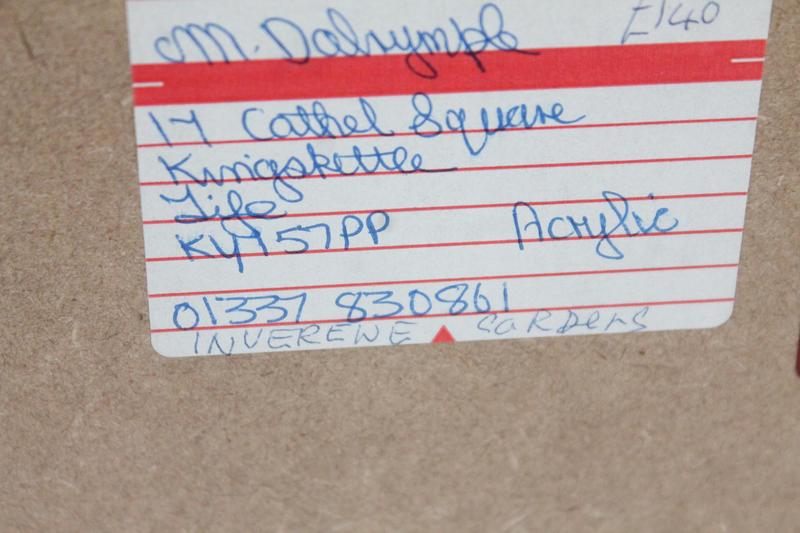 M. Dalrymple £140
17 Cathel Square
Kingskettle
Fife
KY15 7PP Acrylic
01337 830861
INVEREWE GARDENS